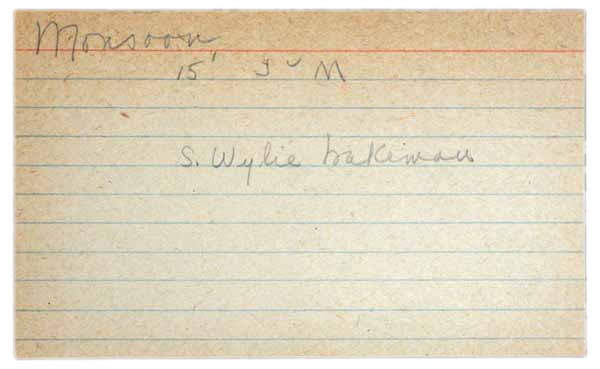 Monsoon
15' J M
S. Wylie Wakeman